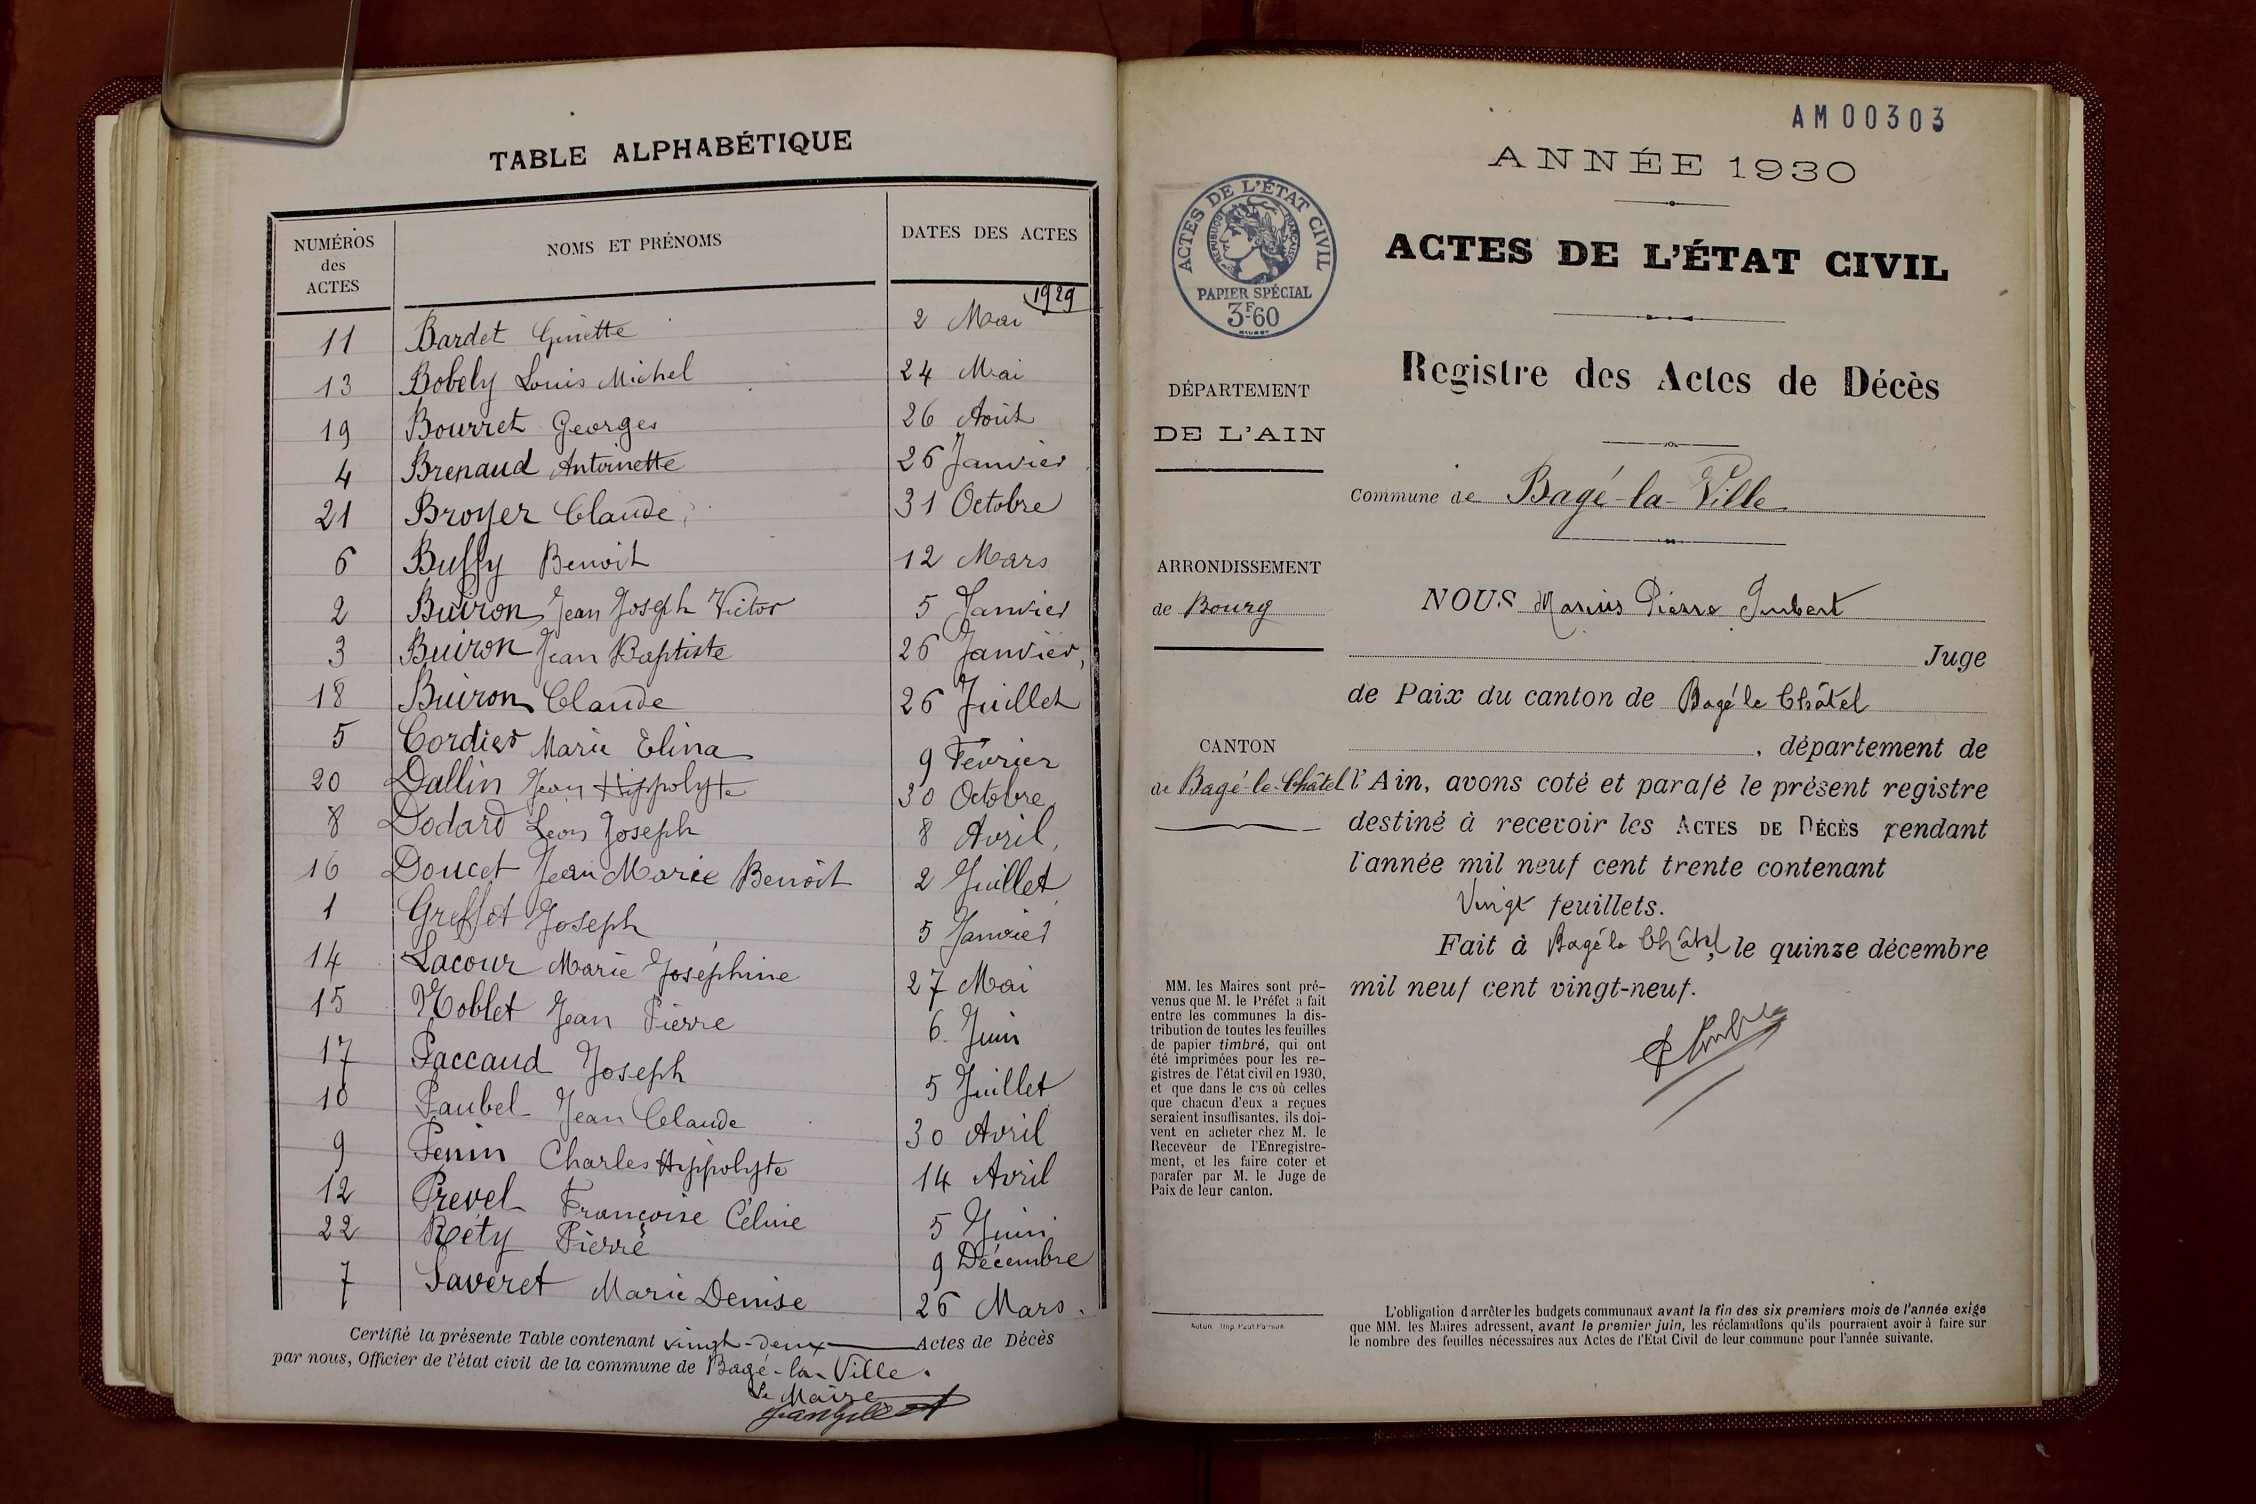 TABLE ALPHABÉTIQUE
NUMÉROS des ACTES
NOMS ET PRÉNOMS
DATES DES ACTES
1929
11 Bardet Ginette 2 Mai
13 Bobely Louis Michel 24 Mai
19 Bourret Georges 26 Août
4 Brenaud Antoinette 26 Janvier
21 Broyer Claude 31 Octobre
6 Buffy Benoit 12 Mars
2 Buiron Jean Joseph Victor 5 Janvier
3 Buiron Jean Baptiste 26 Janvier
18 Buiron Claude 26 Juillet
5 Cordier Marie Elina 9 Février
20 Dallin Jean Hippolyte 30 Octobre
8 Dodard Léon Joseph 8 Avril
16 Doucet Jean Marie Benoît 2 Juillet
1 Greffet Joseph 5 Janvier
14 Lacour Marie Joséphine 27 Mai
15 Noblet Jean Pierre 6 Juin
17 Paccaud Joseph 5 Juillet
10 Paubel Jean Claude 30 Avril
9 Penin Charles Hippolyte 14 Avril
12 Prevel Françoise Céline 5 Juin
22 Réty Pierre 9 Décembre
7 Saveret Marie Denise 26 Mars.
Certifié la présente Table contenant vingt-deux Actes de Décès
par nous, Officier de l'état civil de la commune de Bagé-la-Ville.
Le Maire
AM00303
ANNÉE 1930
ACTES DE L'ÉTAT CIVIL
RÉPUBLIQUE FRANÇAISE
PAPIER SPÉCIAL
3F60
ACTES DE L'ÉTAT CIVIL
Registre des Actes de Décès
DÉPARTEMENT
DE L'AIN
Commune de Bagé-la-Ville
ARRONDISSEMENT
de Bourg
CANTON
de Bagé-le-Châtel
NOUS Marius Pierre Imbert
Juge
de Paix du canton de Bagé le Châtel
, département de
l'Ain, avons coté et parafé le présent registre
destiné à recevoir les ACTES DE DÉCÈS pendant
l'année mil neuf cent trente contenant
Vingt feuillets.
Fait à Bagé le Châtel, le quinze décembre
mil neuf cent vingt-neuf.
MM. les Maires sont pré-
venus que M. le Préfet a fait
entre les communes la dis-
tribution de toutes les feuilles
de papier timbré, qui ont
été imprimées pour les re-
gistres de l'état civil en 1930,
et que dans le cas où celles
que chacun d'eux a reçues
seraient insuffisantes, ils doi-
vent en acheter chez M. le
Receveur de l'Enregistre-
ment, et les faire coter et
parafer par M. le Juge de
Paix de leur canton.
L'obligation d'arrêter les budgets communaux avant la fin des six premiers mois de l'année exige
que MM. les Maires adressent, avant le premier juin, les réclamations qu'ils pourraient avoir à faire sur
le nombre des feuilles nécessaires aux Actes de l'Etat Civil de leur commune pour l'année suivante.